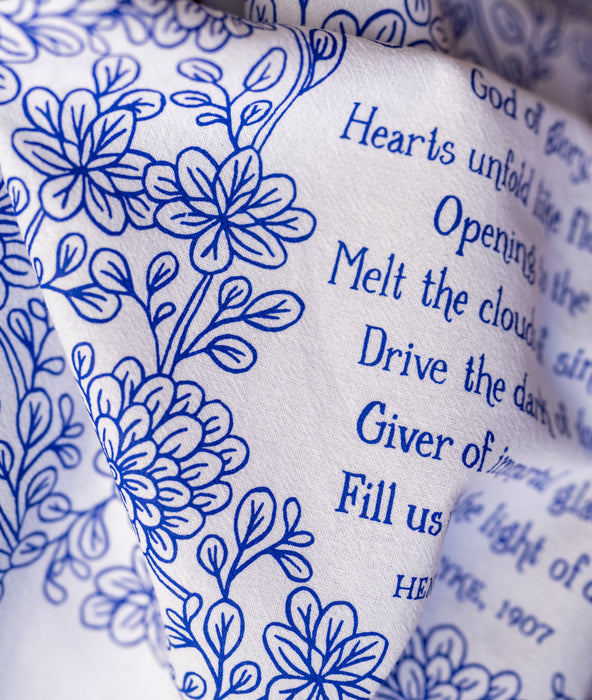 God of glory
Hearts unfold like
Opening to the
Melt the clouds of sin
Drive the dark of
Giver of immortal
Fill us the light of
HEN YKE, 1907